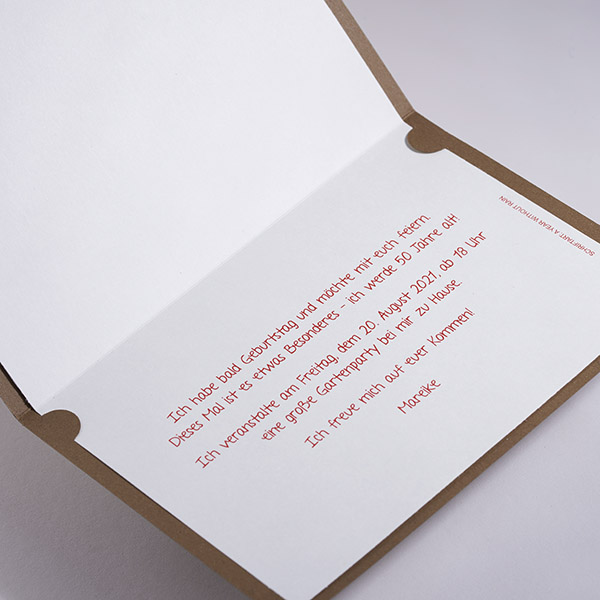 Ich habe bald Geburtstag und möchte mit euch feiern.
Dieses Mal ist es etwas Besonderes - ich werde 50 Jahre alt!
Ich veranstalte am Freitag, dem 20. August 2021, ab 18 Uhr
eine große Gartenparty bei mir zu Hause.
Ich freue mich auf euer Kommen!
Mareike
SCHRIFTART: A YEAR WITHOUT RAIN